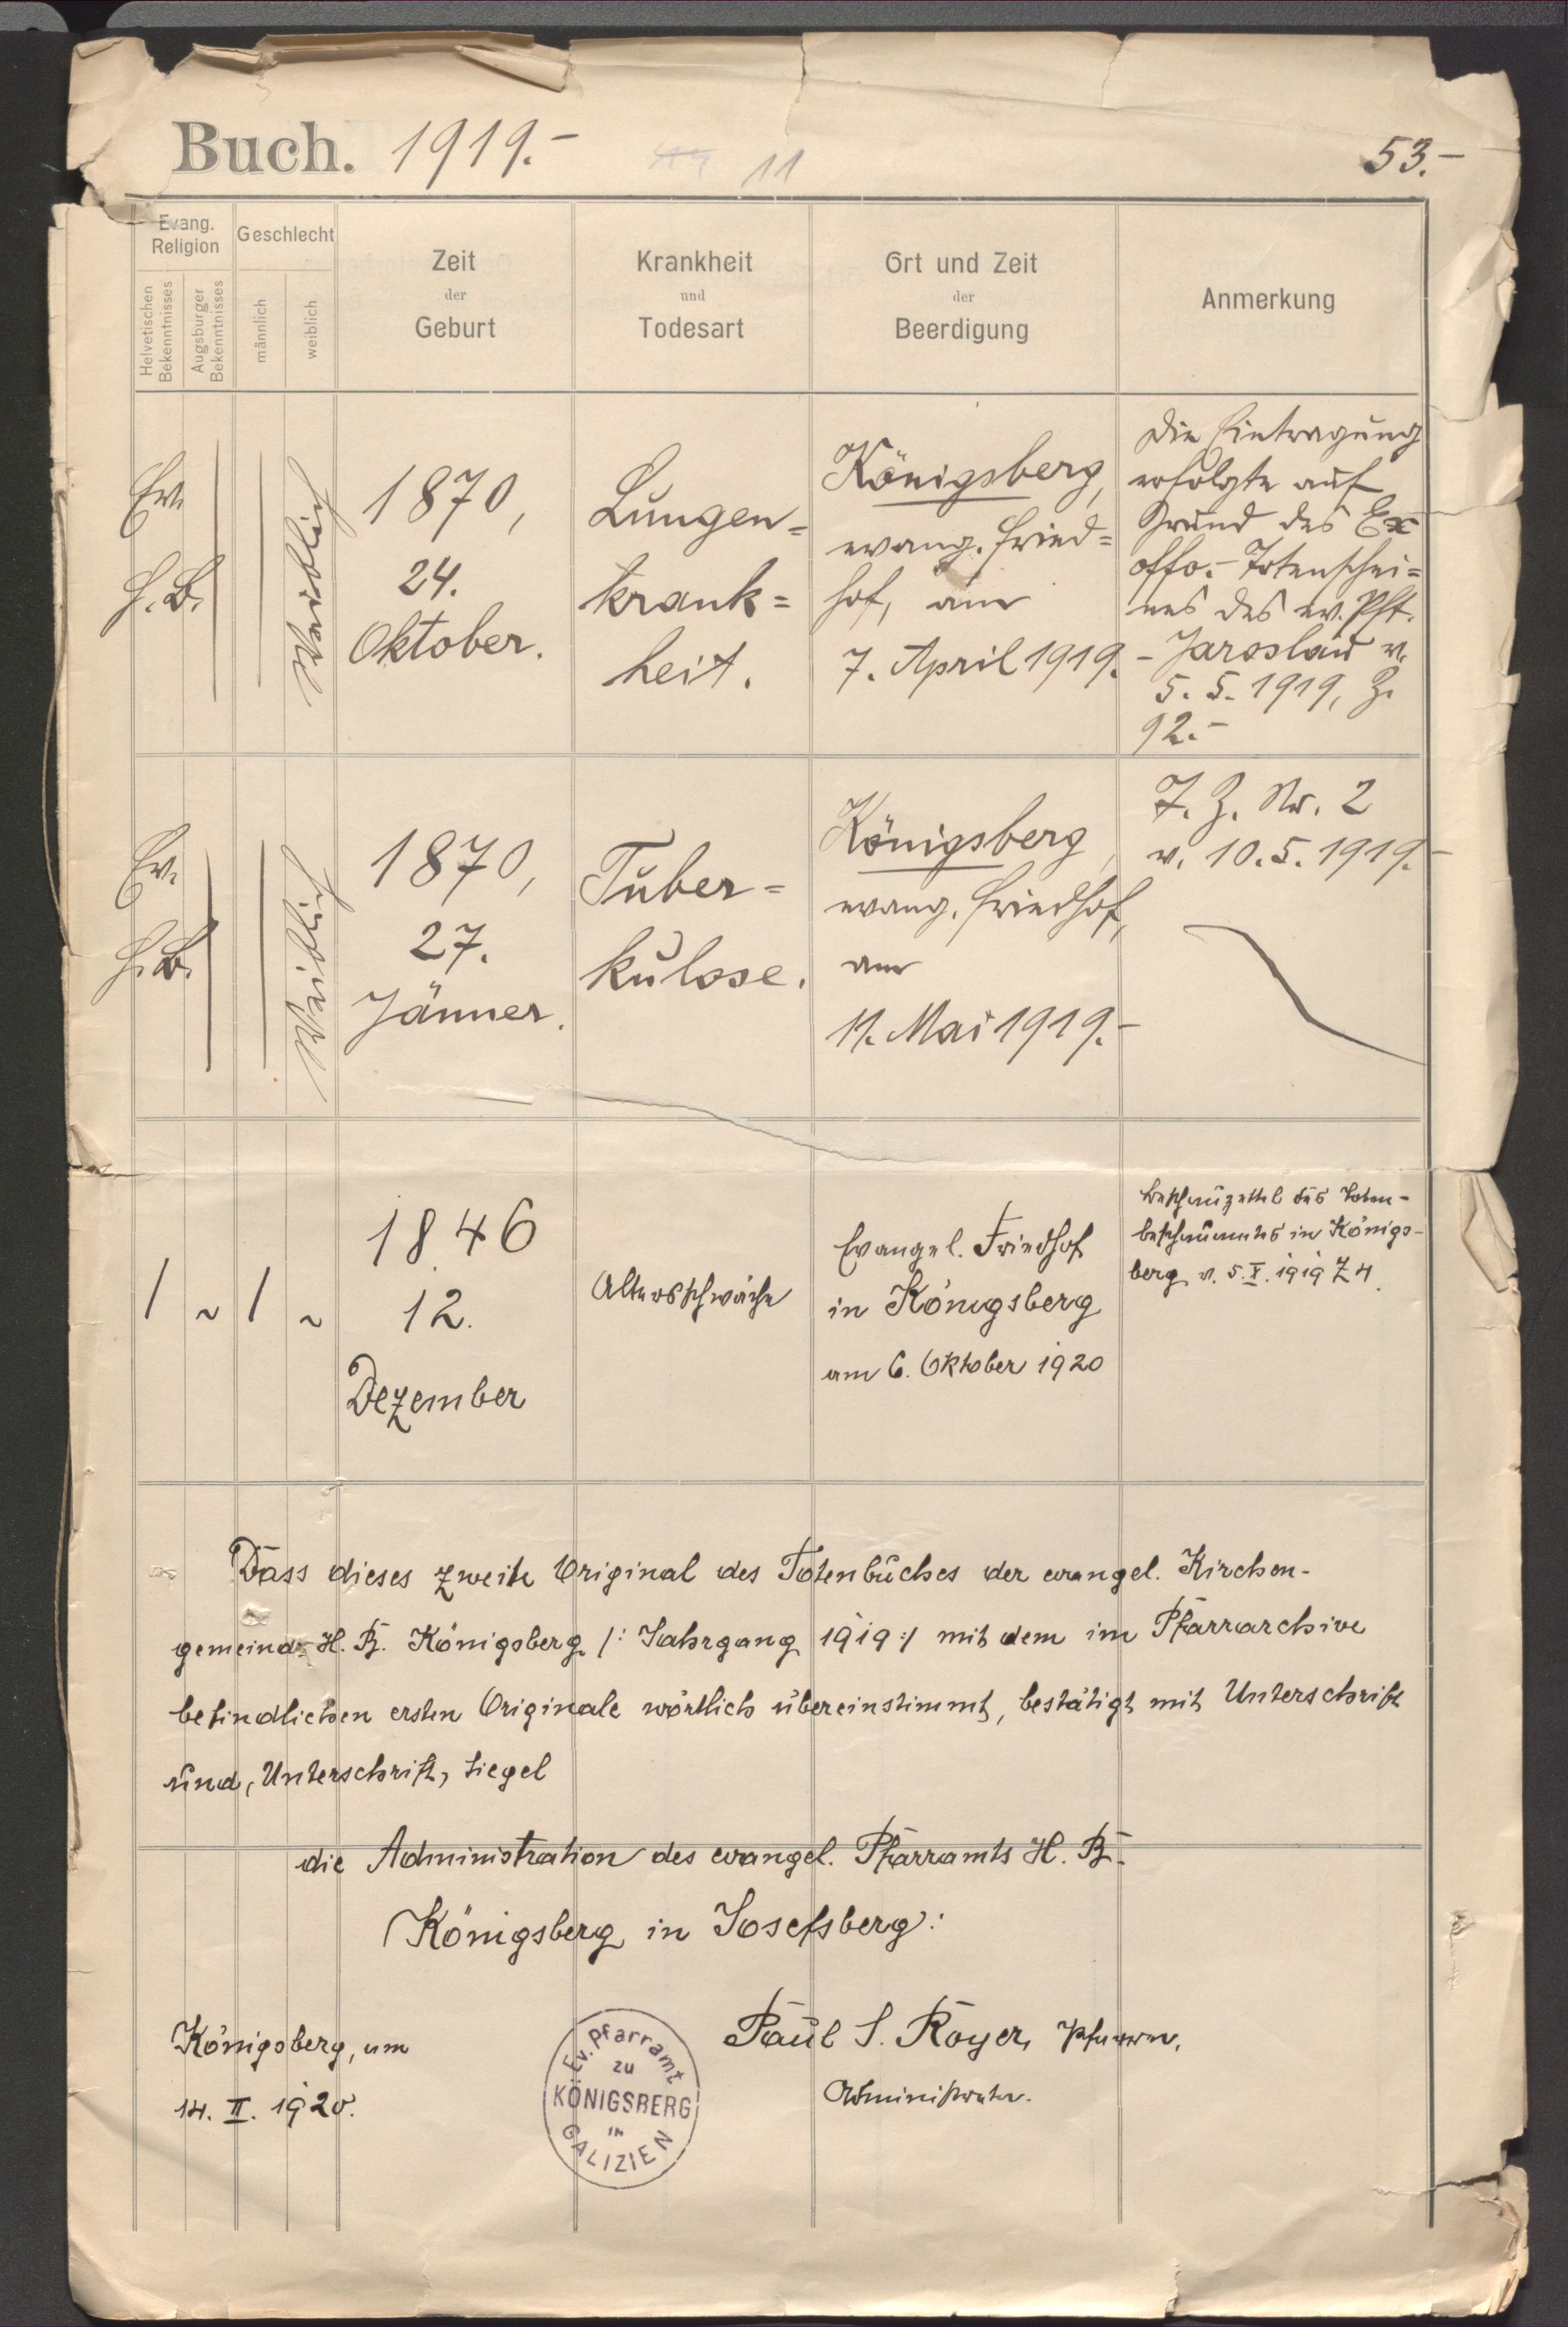 Buch. 1919.- 11 53.-
Evang. Religion
Geschlecht
Helvetischen Bekenntnisses
Augsburger Bekenntnisses
männlich
weiblich
Zeit
der
Geburt
Krankheit
und
Todesart
Ort und Zeit
der
Beerdigung
Anmerkung
Ev.
H. B.
Weiblich
1870,
24.
Oktober.
Lungen=
krank=
heit.
Königsberg,
evang. Fried=
hof, am
7. April 1919.
Die Eintragung
erfolgte auf
Grund des Ex
offo.- Totenschei=
nes des ev. Pft.
- Jaroslau v.
5. 5. 1919, Z.
92.-
Ev.
H. B.
Weiblich
1870,
27.
Jänner.
Tuber=
kulose.
Königsberg,
evang. Friedhof,
am
11. Mai 1919.-
T. Z. Nr. 2
v. 10. 5. 1919.-
1 ~ 1 ~
1846
12.
Dezember
Altersschwäche
Evangel. Friedhof
in Königsberg
am 6. Oktober 1920
Beschauzettel des Toten-
beschauamtes in Königs-
berg v. 5. X. 1919 Z 4.
Dass dieses zweite Original des Totenbuches der evangel. Kirchen-
gemeinde H. B. Königsberg /: Jahrgang 1919 :/ mit dem im Pfarrarchive
befindlichen ersten Originale wörtlich übereinstimmt, bestätigt mit Unterschrift
und, Unterschrift, Siegel
die Administration des evangel. Pfarramts H. B.
Königsberg in Josefsberg:
Königsberg, am
14. II. 1920.
Ev. Pfarramt
zu
KÖNIGSBERG
in
GALIZIEN
Paul S. Royer, Pfarrer,
Administrator.